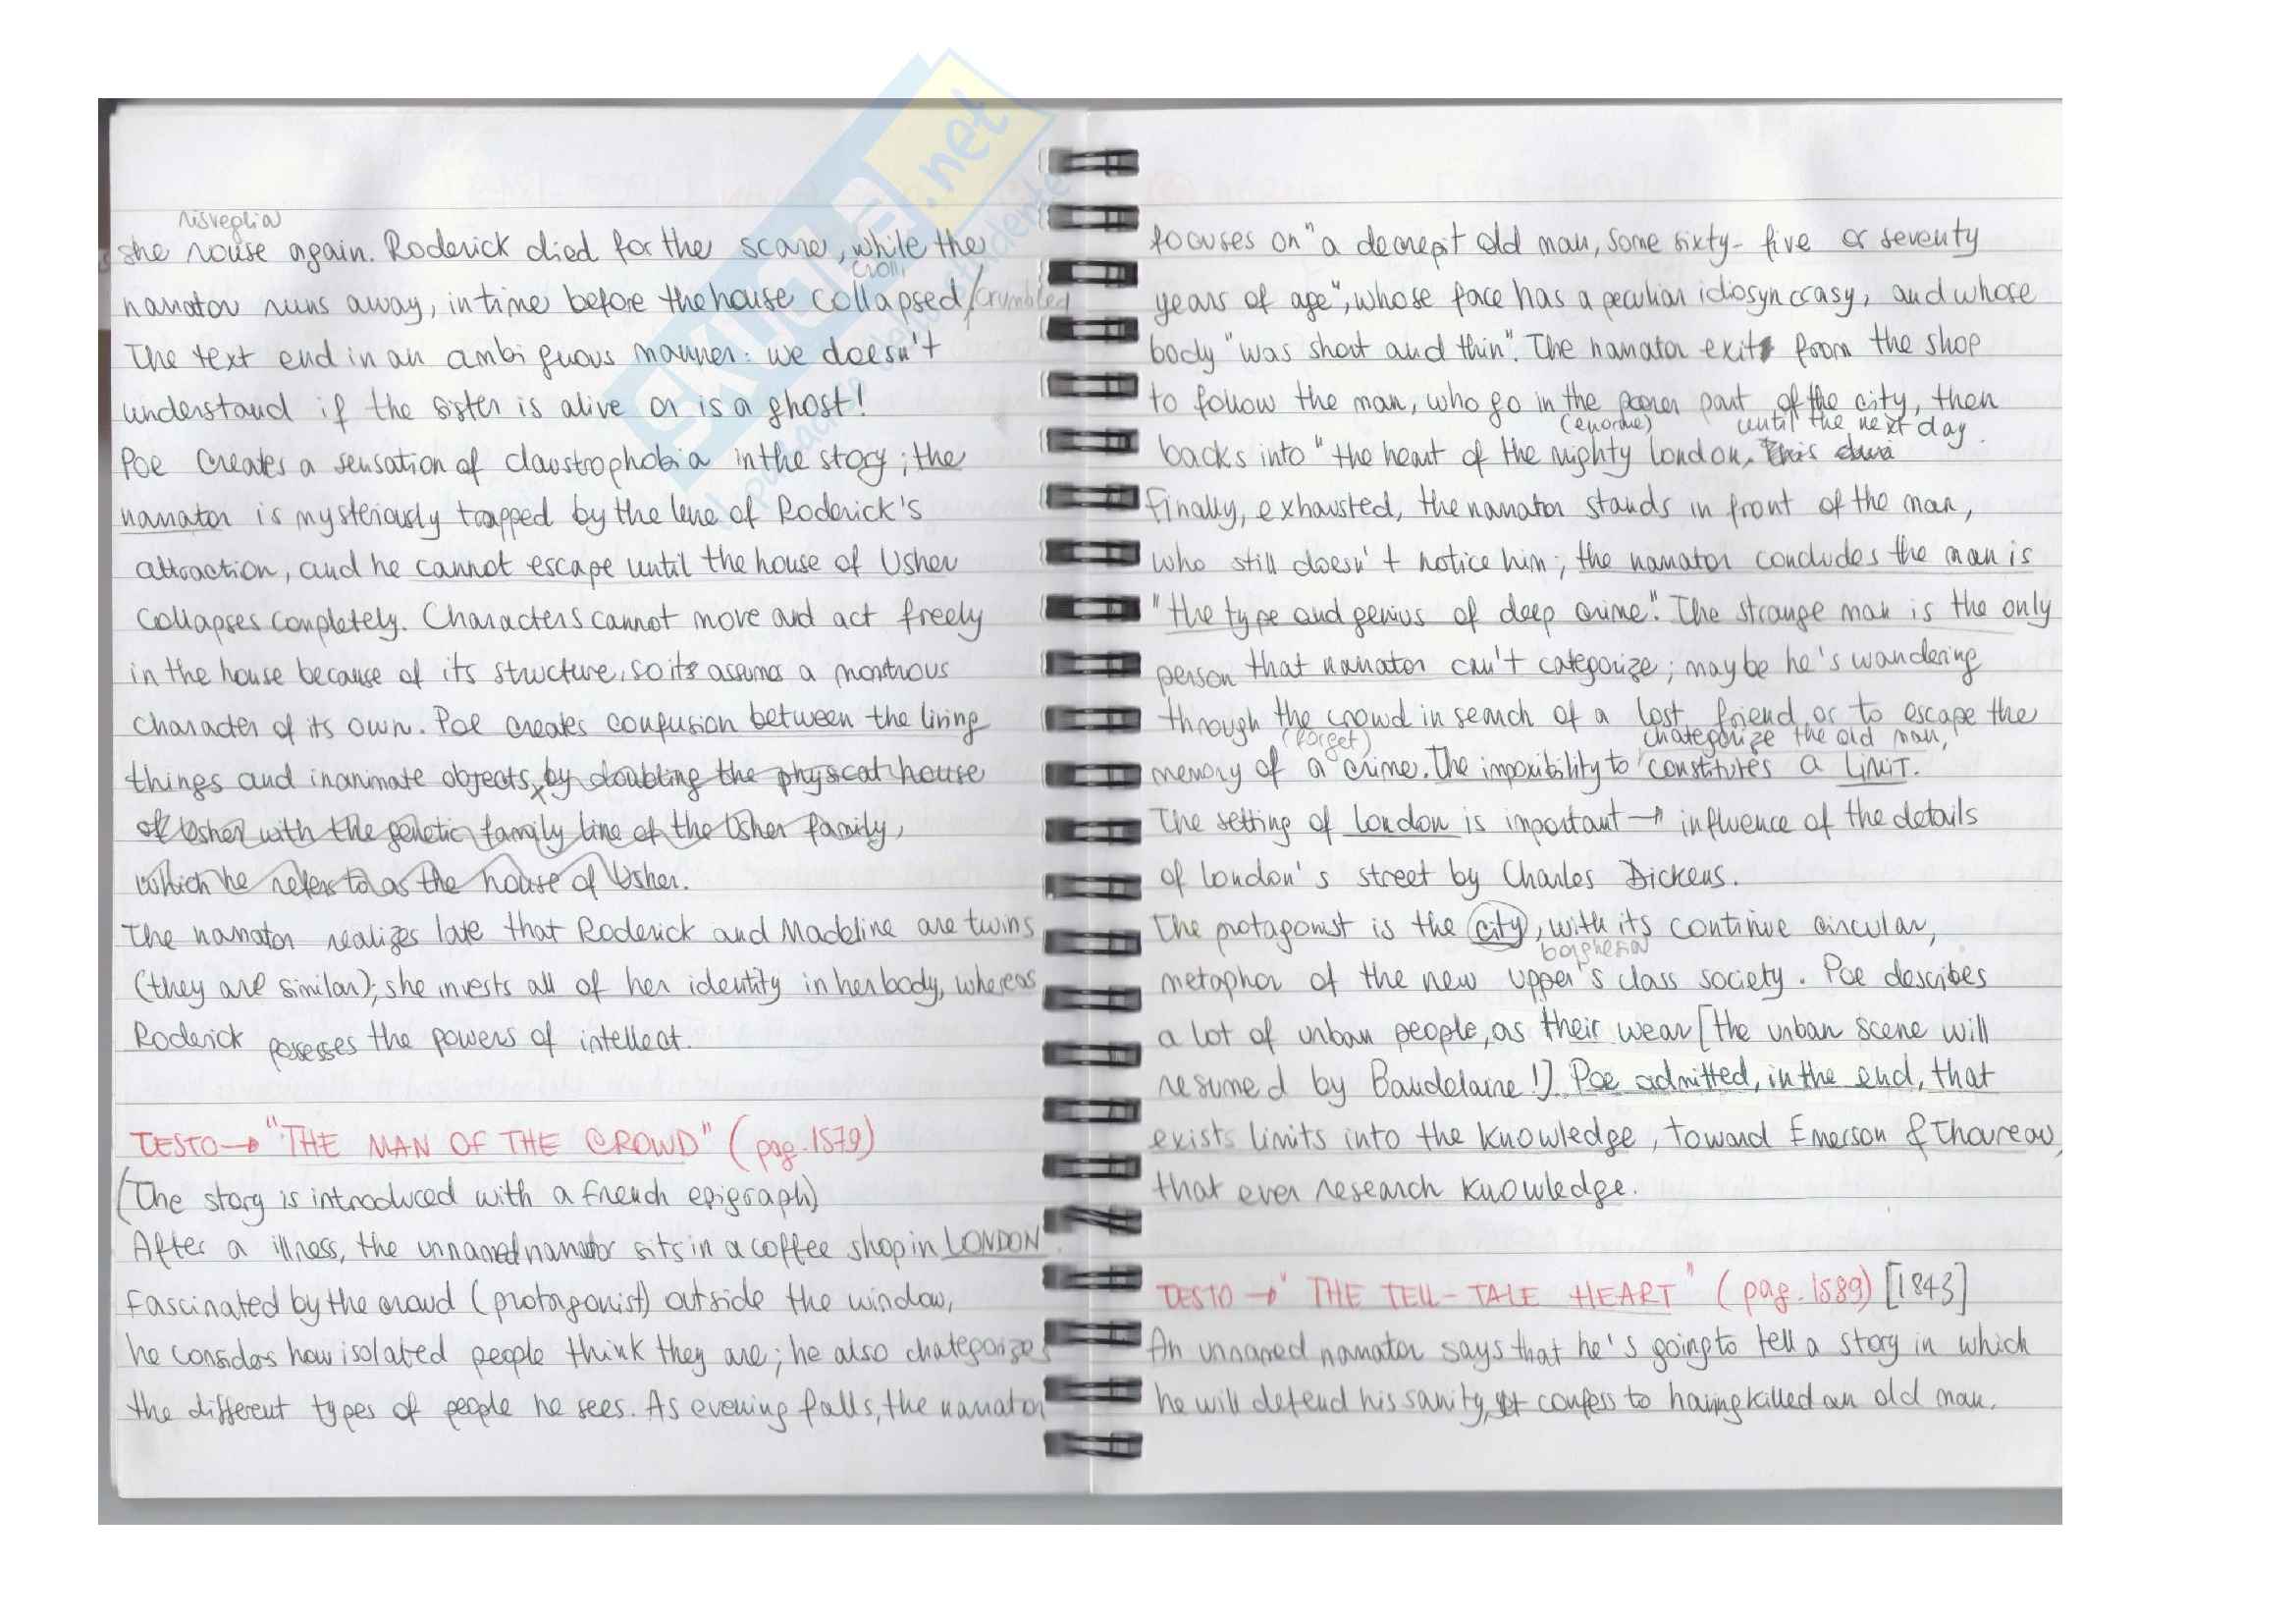 risveglia
she rouse again. Roderick died for the scare, while the
crolli
narrator runs away, in time before the house collapsed/crumbled
The text end in an ambiguous manner: we doesn't
understand if the sister is alive or is a ghost!
Poe creates a sensation of claustrophobia in the story; the
narrator is mysteriously trapped by the lure of Roderick's
attraction, and he cannot escape until the house of Usher
collapses completely. Characters cannot move and act freely
in the house because of its structure, so its assumes a monstrous
character of its own. Poe creates confusion between the living
things and inanimate objects, by doubling the physical house
of Usher with the genetic family line of the Usher family,
which he refers to as the house of Usher.
The narrator realizes late that Roderick and Madeline are twins
(they are similar); she invests all of her identity in her body, whereas
Roderick possesses the powers of intellect.
TESTO → "THE MAN OF THE CROWD" (pag. 1579)
(The story is introduced with a French epigraph)
After a illness, the unnamed narrator sits in a coffee shop in LONDON.
Fascinated by the crowd (protagonist) outside the window,
he considers how isolated people think they are; he also chategorizes
the different types of people he sees. As evening falls, the narrator
focuses on "a decrepit old man, some sixty-five or seventy
years of age", whose face has a peculiar idiosyncrasy, and whose
body "was short and thin". The narrator exit from the shop
to follow the man, who go in the poorer part of the city, then
(enorme) until the next day.
backs into "the heart of the mighty London.
Finally, exhausted, the narrator stands in front of the man,
who still doesn't notice him; the narrator concludes the man is
"the type and genius of deep crime". The strange man is the only
person that narrator can't categorize; maybe he's wandering
through the crowd in search of a lost friend or to escape the
(forget) chategorize the old man,
memory of a crime. The impossibility to constitutes a LIMIT.
The setting of London is important → influence of the details
of London's street by Charles Dickens.
The protagonist is the city, with its continue circular,
borghesia
metaphor of the new upper's class society. Poe describes
a lot of urban people, as their wear [the urban scene will
resumed by Baudelaire!]. Poe admitted, in the end, that
exists limits into the knowledge, toward Emerson & Thoureau,
that ever research knowledge.
TESTO → "THE TELL-TALE HEART" (pag. 1589) [1843]
An unnamed narrator says that he's going to tell a story in which
he will defend his sanity, yet confess to having killed an old man.
SKUOLA.net